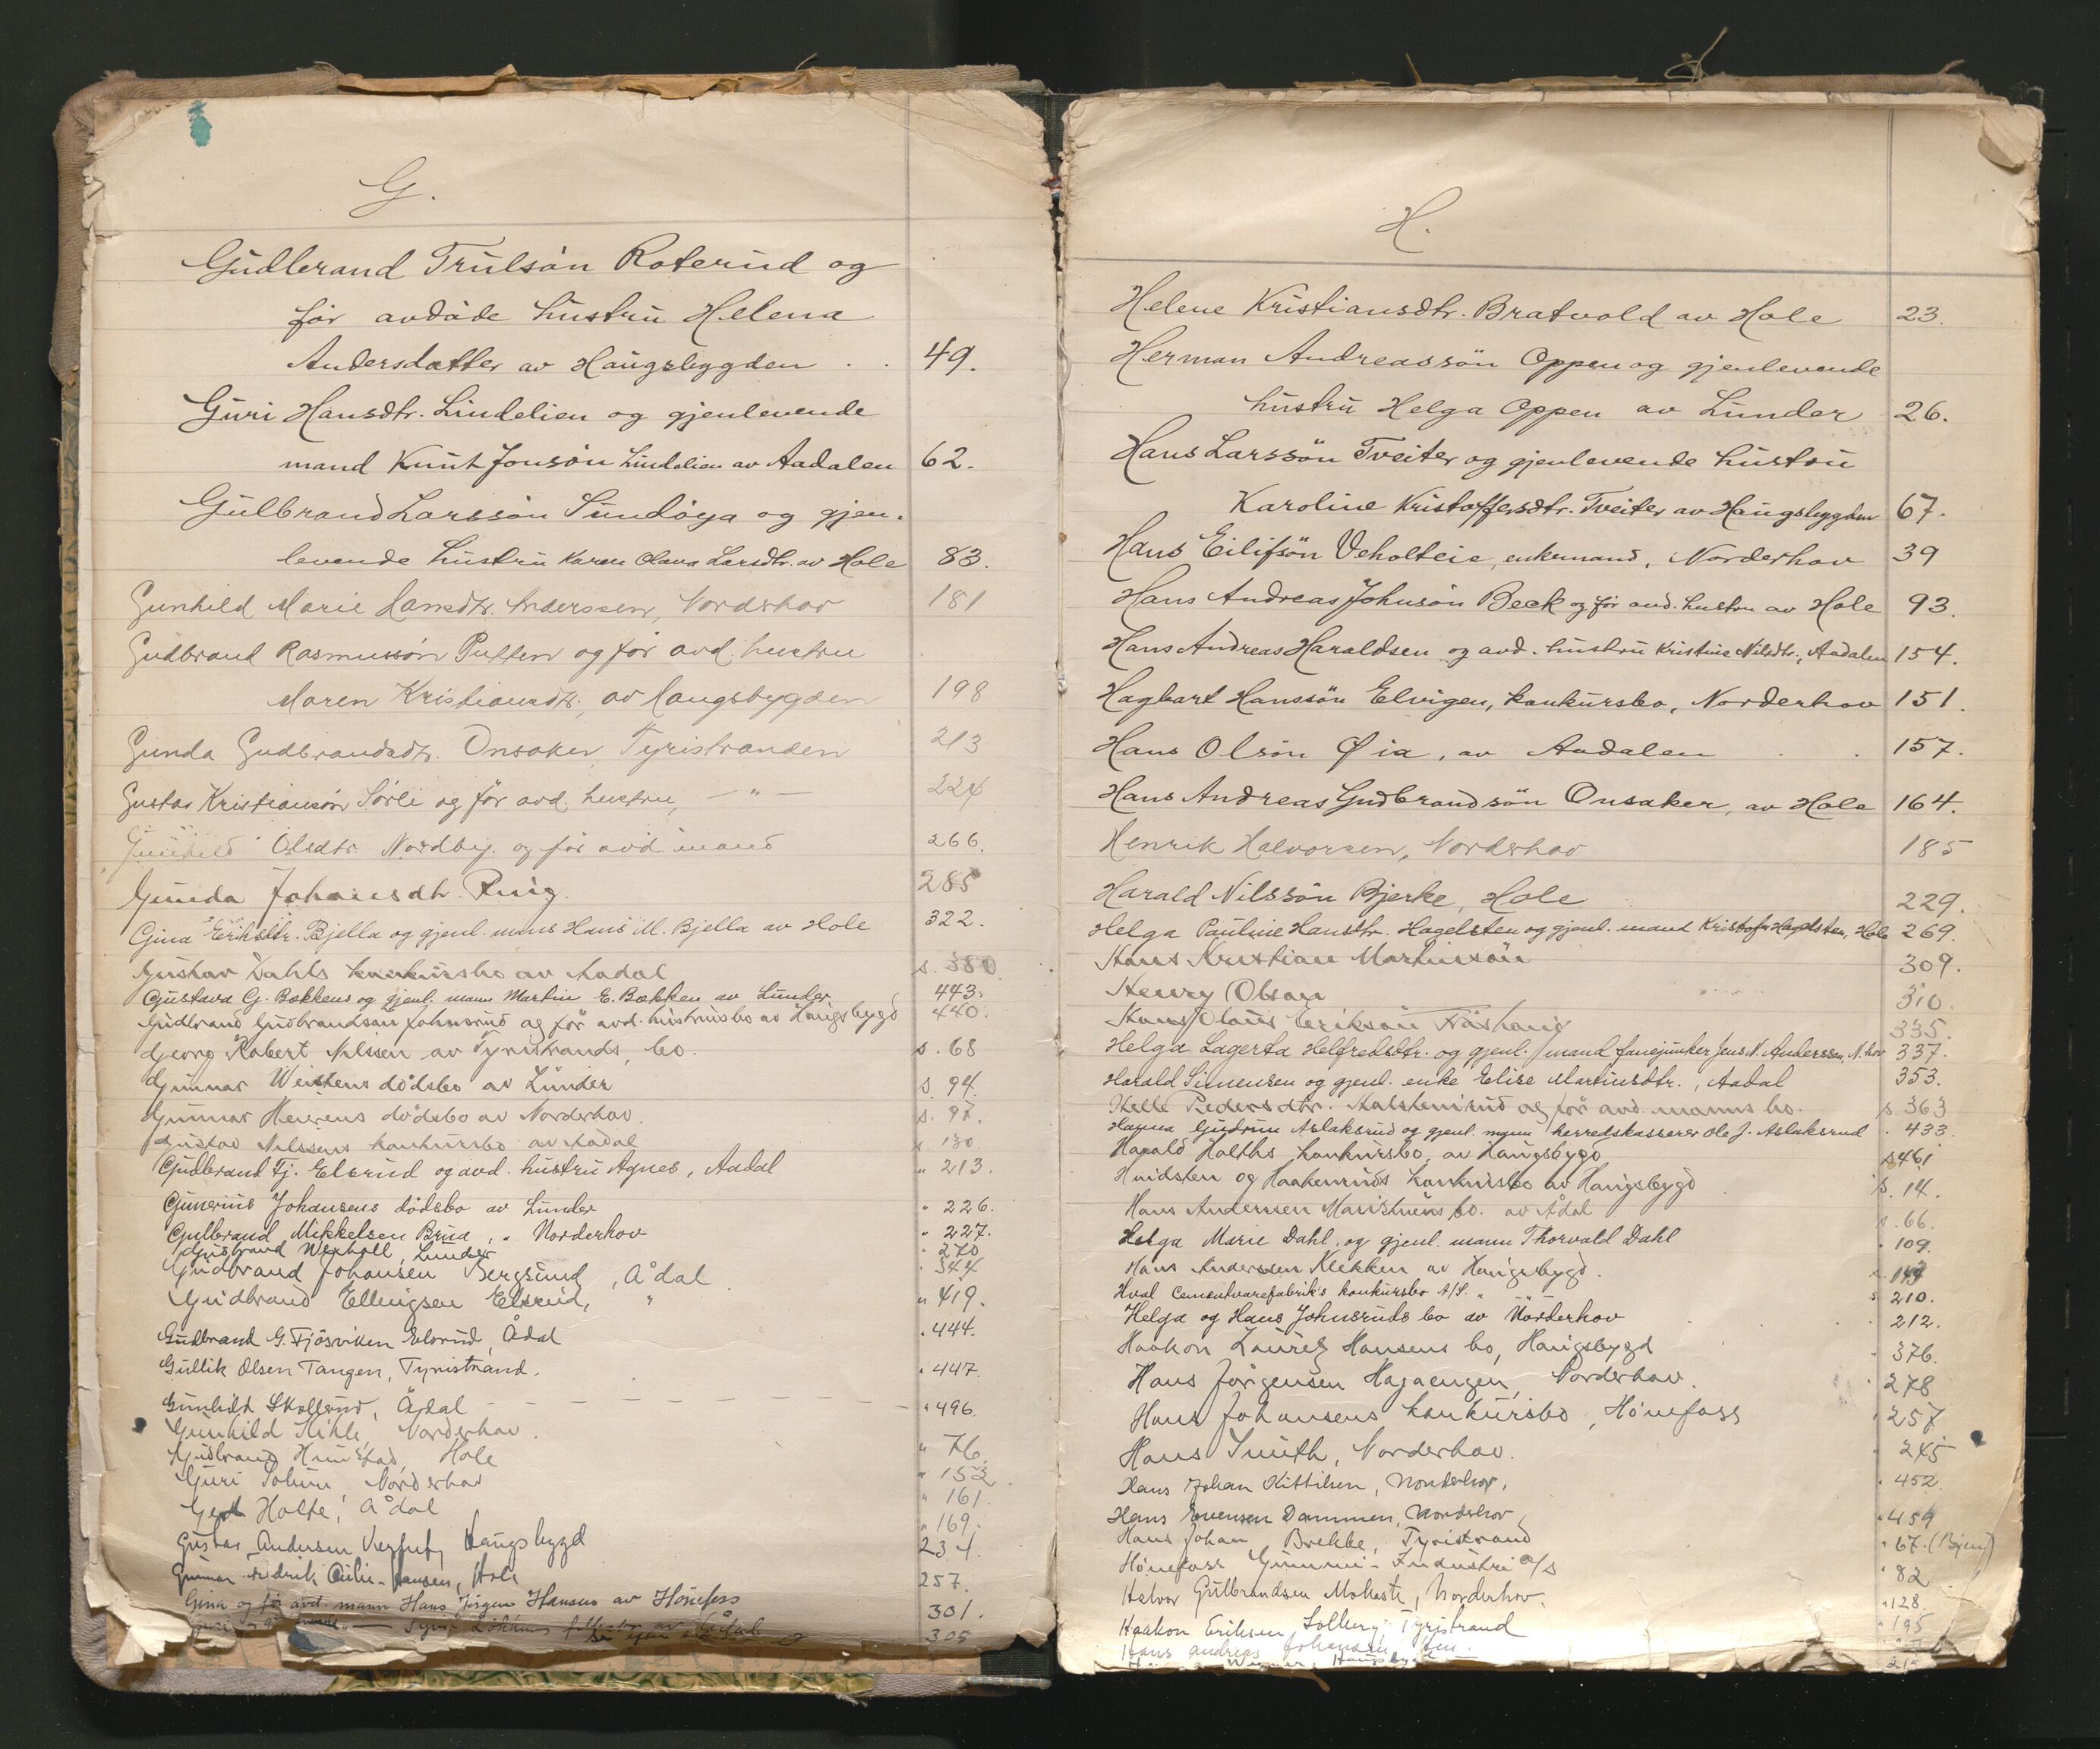 G.
Gudbrand Trulsön Roterud og
för avdöde hustru Helena
Andersdatter av Haugsbygden . . 49.
Guri Hansdtr. Lindelien og gjenlevende
mand Knut Jonsön Lindelien av Aadalen 62.
Gulbrand Larssön Sundöya og gjen-
levende hustru Karen Olava Larsdtr. av Hole 83.
Gunhild Marie Hansdtr. Anderssen, Norderhov 181
Gudbrand Rasmussön Putten og för avd. hustru
Maren Kristiansdtr. av Haugsbygden 198
Gunda Gudbrandsdtr. Onsaker, Tyristranden 213
Gustav Kristiansön Sörli og för avd. hustru, — " — 224
Gunhild Olsdtr. Nordby og för avd. mand 266.
Gunda Johansdtr. Ruig. 285
Gina Eriksdtr. Bjella og gjenl. mans Hans M. Bjella av Hole 322.
Gustav Dahls konkursbo av Aadal s. 380
Gustava G. Bækkens og gjenl. mann Martin E. Bækken av Lunder 443.
Gudbrand Gudbrandsön Johnsrud og för avd. hustrusbo av Haugsbygd 440.
Georg Robert Nilssen av Tyristrands bo. s. 68
Gunnar Weistens dödsbo av Lunder s. 94.
Gunnar Heiens dödsbo av Norderhov. s. 97.
Gustav Nilssens konkursbo av Aadal s. 130
Gudbrand Fj. Elsrud og avd. hustru Agnes, Aadal " 213.
Gunerius Johansens dödsbo av Lunder " 226.
Gulbrand Mikkelsen Brua, " Norderhov " 227.
Gudbrand Wexhall, Lunder " 270
Gudbrand Johansen Bergsund, Ådal " 344
Gudbrand Ellingsen Elsrud, " " 419.
Gudbrand G. Fjösviken Elsrud, Ådal " 444.
Gullik Olsen Tangen, Tyristrand. " 447.
Gunhild Skollerud, Ådal — — — — " 496.
Gunhild Kihle, Norderhov. " 76.
Gudbrand Hunstad, Hole " 152
Guri Norderhov " 161.
Gerd Holte, Ådal " 169.
Gustav Andersen Haugsbygd 234.
Gunnar Fredrik Hansen, Hole 257.
Gina og för avd. mann Hans Jörgen Hansens av Hönefoss 301.
305
H.
Helene Kristiansdtr. Bratvold av Hole 23.
Herman Andreassön Oppen og gjenlevende
hustru Helga Oppen av Lunder 26.
Hans Larssön Tveiter og gjenlevende hustru
Karoline Kristoffersdtr. Tveiter av Haugsbygden 67.
Hans Eilifsön Veholteie, enkemand, Norderhov 39
Hans Andreas Johnsön Beck og för avd. hustru av Hole 93.
Hans Andreas Haraldsen og avd. hustru Kristine Nilsdtr., Aadalen 154.
Hagbart Hanssön Elvigen, konkursbo, Norderhov 151.
Hans Olsön Øia, av Aadalen . . 157.
Hans Andreas Gudbrandsön Onsaker, av Hole 164.
Henrik Halvorsen, Norderhov 185
Harald Nilssön Bjerke, Hole 229.
Helga Pauline Hansdtr. Hagelsten og gjenl. mand Kristofer Hagelsten, Hole 269.
Hans Kristian Martinsön 309.
Henry Olsen 310.
Hans Olaus Eriksön Fröshaug 335.
Helga Lagerta Helfredsdtr. og gjenl. mand fanejunker Jens N. Anderssen, N.hov 337.
Harald Simensen og gjenl. enke Elise Martinsdtr., Aadal 353.
Helle Pedersdtr. Aalstenrud og för avd. manns bo. s. 363
Hanna Gudrun Aslaksrud og gjenl. mann herredskasserer Ole J. Aslaksrud . 433.
Harald Holths konkursbo, av Haugsbygd s 461
Hvidsten og Haakenruds konkursbo av Haugsbygd s. 14.
Hans Anderssen Maristuens bo. av Ådal s. 66.
Helga Marie Dahl og gjenl. mann Thorvald Dahl " 109.
Hans Anderssen Klekken av Haugsbygd. s. 147
Hval Cementvarefabrik's konkursbo A/S. " — " — s 210.
Helga og Hans Johnsruds bo av Norderhov 212.
Haakon Lauritz Hansens bo, Haugsbygd 376.
Hans Jörgensen Hagaengen, Norderhov. 278
Hans Johansens konkursbo, Hönefoss 257
Hans Smith, Norderhov. 245
Hans Johan Kittilsen, Norderhov, " 452
Hans Evensen Dammen, Norderhov, " 459
Hans Johan Brekke, Tyristrand " 67. (Byen)
Hönefoss Gummi-Industri A/S " 82
Halvor Gulbrandsen Moheste, Norderhov. " 128.
Haakon Eriksen Solberg, Tyristrand " 195
Hans Andreas Johansen
Haugsbygd